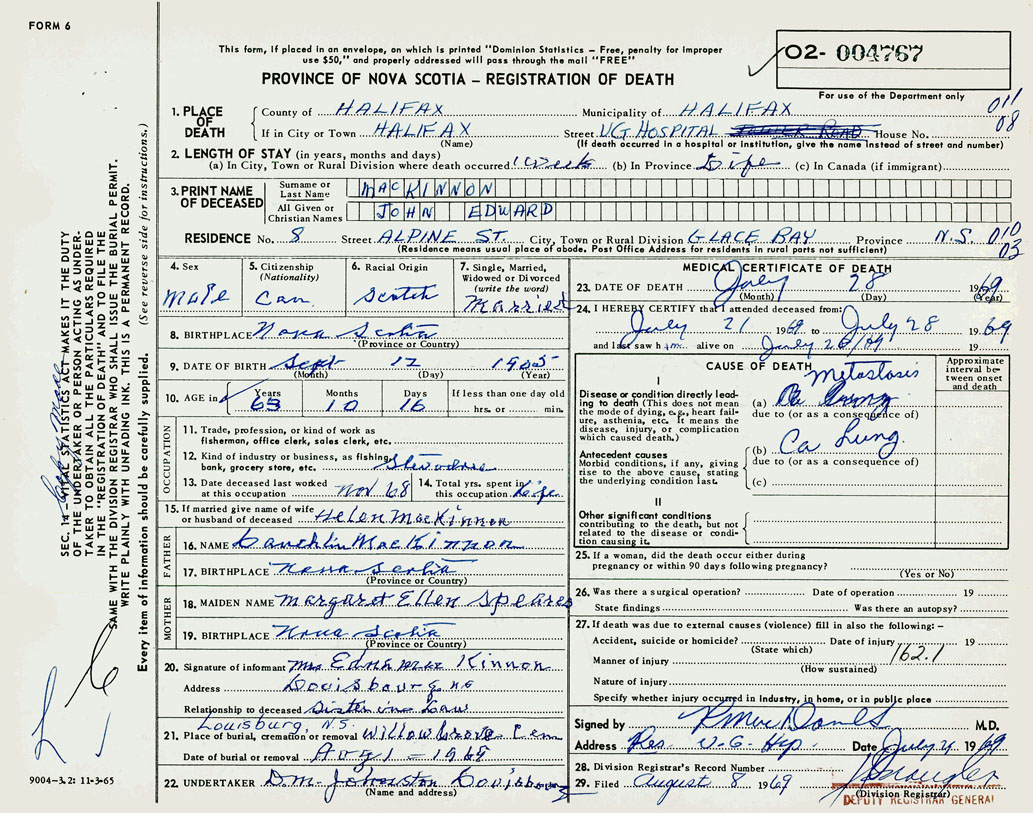 FORM 6
This form, if placed in an envelope, on which is printed "Dominion Statistics – Free, penalty for improper
use $50," and properly addressed will pass through the mail "FREE"
PROVINCE OF NOVA SCOTIA – REGISTRATION OF DEATH
O2- 004767
For use of the Department only
011
08
1. PLACE OF DEATH
County of HALIFAX Municipality of HALIFAX
If in City or Town HALIFAX Street VG HOSPITAL House No.
(Name) (If death occurred in a hospital or institution, give the name instead of street and number)
2. LENGTH OF STAY (in years, months and days)
(a) In City, Town or Rural Division where death occurred 1 week (b) In Province Life (c) In Canada (if immigrant)
3. PRINT NAME OF DECEASED
Surname or Last Name MACKINNON
All Given or Christian Names JOHN EDWARD
RESIDENCE No. 8 Street ALPINE ST. City, Town or Rural Division GLACE BAY Province N.S. 010
03
(Residence means usual place of abode. Post Office Address for residents in rural parts not sufficient)
4. Sex Male
5. Citizenship (Nationality) Can.
6. Racial Origin Scotch
7. Single, Married, Widowed or Divorced (write the word) Married
8. BIRTHPLACE Nova Scotia
(Province or Country)
9. DATE OF BIRTH Sept 12 1905
(Month) (Day) (Year)
10. AGE in Years 63 Months 10 Days 16 If less than one day old hrs. or min.
OCCUPATION
11. Trade, profession, or kind of work as
fisherman, office clerk, sales clerk, etc.
12. Kind of industry or business, as fishing,
bank, grocery store, etc.
13. Date deceased last worked
at this occupation Nov 68
14. Total yrs. spent in
this occupation Life
15. If married give name of wife
or husband of deceased Helen MacKinnon
FATHER
16. NAME Lauchlin MacKinnon
17. BIRTHPLACE Nova Scotia
(Province or Country)
MOTHER
18. MAIDEN NAME Margaret Ellen Speares
19. BIRTHPLACE Nova Scotia
(Province or Country)
20. Signature of informant Mrs Edna Mac Kinnon
Address Louisbourg NS
Relationship to deceased Sister in Law
Louisburg, N.S.
21. Place of burial, cremation or removal Willow Grove Cem
Date of burial or removal Aug 1 – 1969
22. UNDERTAKER D.M. Johnston Louisbourg
(Name and address)
MEDICAL CERTIFICATE OF DEATH
23. DATE OF DEATH July 28 1969
(Month) (Day) (Year)
24. I HEREBY CERTIFY that I attended deceased from:
July 21 1969 to July 28 1969
and last saw him alive on July 28/69 19
CAUSE OF DEATH
Approximate interval between onset and death
I
Disease or condition directly leading
to death (This does not mean
the mode of dying, e.g., heart failure,
asthenia, etc. It means the
disease, injury, or complication
which caused death.)
Metastasis
(a) Ca Lung
due to (or as a consequence of)
Antecedent causes
Morbid conditions, if any, giving
rise to the above cause, stating
the underlying condition last.
(b) Ca Lung.
due to (or as a consequence of)
(c)
II
Other significant conditions
contributing to the death, but not
related to the disease or condition
causing it.
25. If a woman, did the death occur either during
pregnancy or within 90 days following pregnancy?
(Yes or No)
26. Was there a surgical operation? Date of operation 19
State findings Was there an autopsy?
27. If death was due to external causes (violence) fill in also the following:–
Accident, suicide or homicide? Date of injury 19
(State which)
162.1
Manner of injury
(How sustained)
Nature of injury
Specify whether injury occurred in industry, in home, or in public place
Signed by M.D.
Address Res. V.G. Hosp. Date July 1969
28. Division Registrar's Record Number
29. Filed August 8 1969
(Division Registrar)
DEPUTY REGISTRAR GENERAL
SEC. 14 – VITAL STATISTICS ACT MAKES IT THE DUTY
OF THE UNDERTAKER OR PERSON ACTING AS UNDERTAKER
TO OBTAIN ALL THE PARTICULARS REQUIRED
IN THE "REGISTRATION OF DEATH" AND TO FILE THE
SAME WITH THE DIVISION REGISTRAR WHO SHALL ISSUE THE BURIAL PERMIT.
WRITE PLAINLY WITH UNFADING INK. THIS IS A PERMANENT RECORD.
Every item of information should be carefully supplied. (See reverse side for instructions.)
9004-3.2: 11-3-65